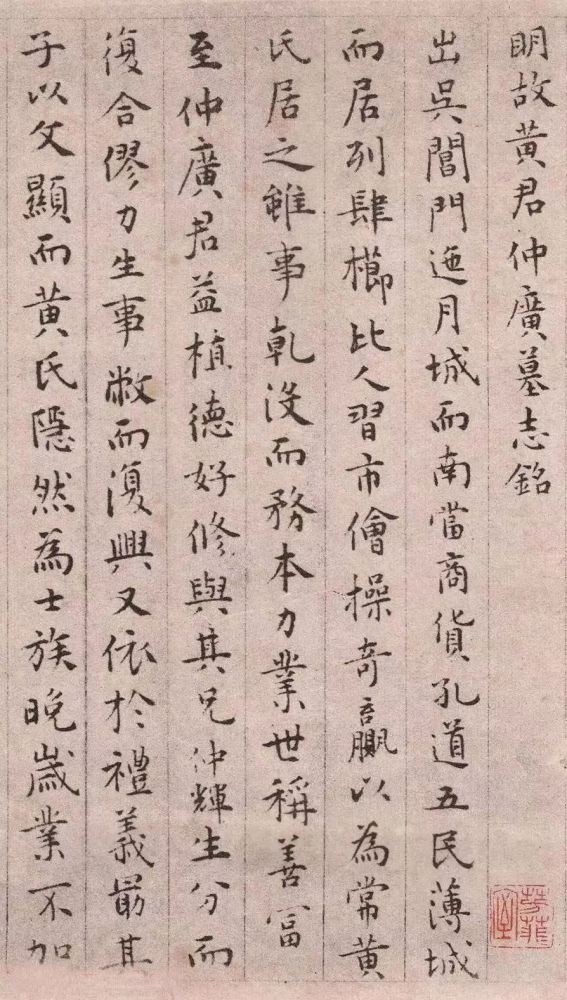 明故黃君仲廣墓志銘
出吳閶門迤月城而南當商貨孔道五民薄城
而居列肆櫛比人習市儈操奇贏以為常黃
氏居之雖事乹沒而務本力業世稱善冨
至仲廣君益植德好修與其兄仲輝生分而
復合僇力生事敝而復興又依於禮義勗其
子以文顯而黃氏隱然為士族晚歲業不加